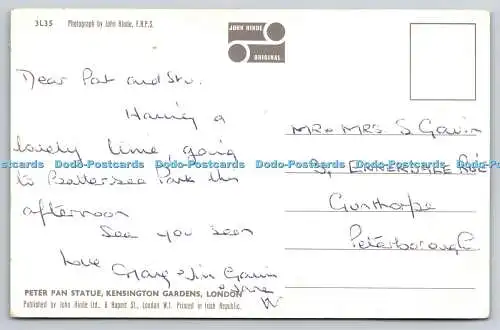 3L35 Photograph by John Hinde, F.R.P.S.
JOHN HINDE
ORIGINAL
Dear Pat and Stu.
Having a
lovely time, going
to Battersea Park this
afternoon
See you soon
Love
Mr & MRS. S Gavin
Gunthorpe
Peterborough
Dodo-Postcards Dodo-Postcards Dodo-Postcards Dodo-Postcards Dodo-Postcards
PETER PAN STATUE, KENSINGTON GARDENS, LONDON
Published by John Hinde Ltd., 6 Rupert St., London W.1. Printed in Irish Republic.